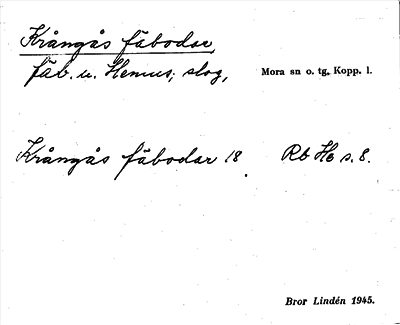 Krångås fäbodar,
fäb. u. Hemus; slog, Mora sn o. tg. Kopp. l.
Krångås fäbodar 18. Rb He s. 8.
Bror Lindén 1945.